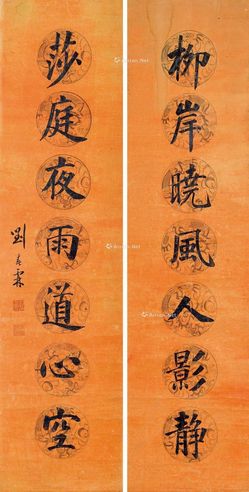 柳岸曉風人影静
莎庭夜雨道心空
劉春霖